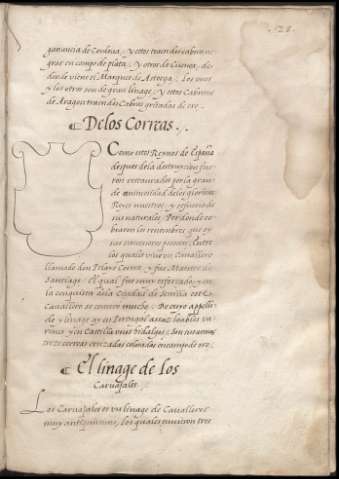 128
ganancia de Cordoua, y estos traen dos cabras ne
gras en campo de plata, y otros de Cuenca, de
de viene el Marques de Astorga. los unos
y los otros son de gran linage, y estos Cabreros
de Aragon traen dos Cabras gritadas de oro.
De los Correas.
Como estos Reynos de España
despues de la destruycion fue
ron restaurados por la gran
de animosidad de los gloriosos
Reyes nuestros, y esfuerço de
sus naturales. Por donde co
braron los renombres que oy
sus sucessores posseen, Entre
los quales vuo un cauallero
llamado don Pelayo Correa, y fue Maestre de
Santiago. El qual fue muy esforçado, y en
la conquista de la Ciudad de Seuilla este
Cauallero se mostro mucho. De cuyo apelli
do y linage ay en Portugal assaz loables va
rones y en Castilla unos hidalgos. Son sus armas
treze correas cruzadas coloradas en campo de oro.
El linage de los
Carvajales.
Los Carvajales es un linage de Caualleros
muy antiquissimo, los quales tuuieron tres